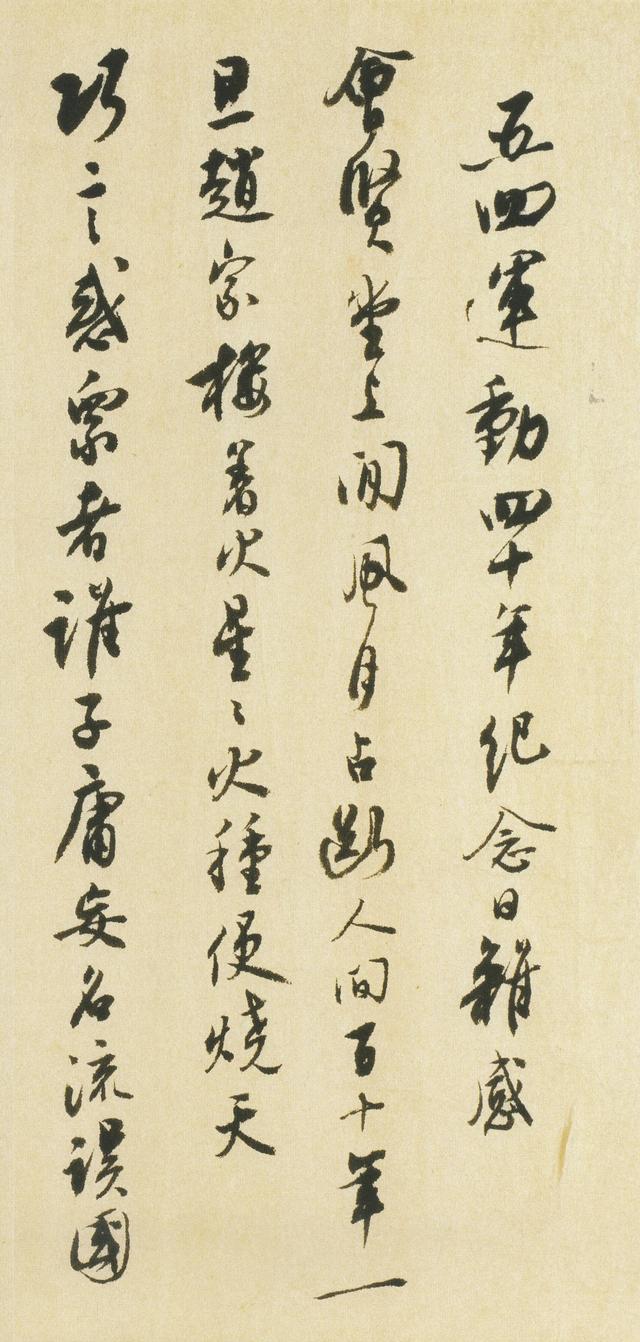 五四運動四十年紀念日雜感
會賢堂上閒風月占斷人間百十年一
旦趙家樓着火星〻火種便燒天
巧言惑眾者誰子庸妄名流誤國